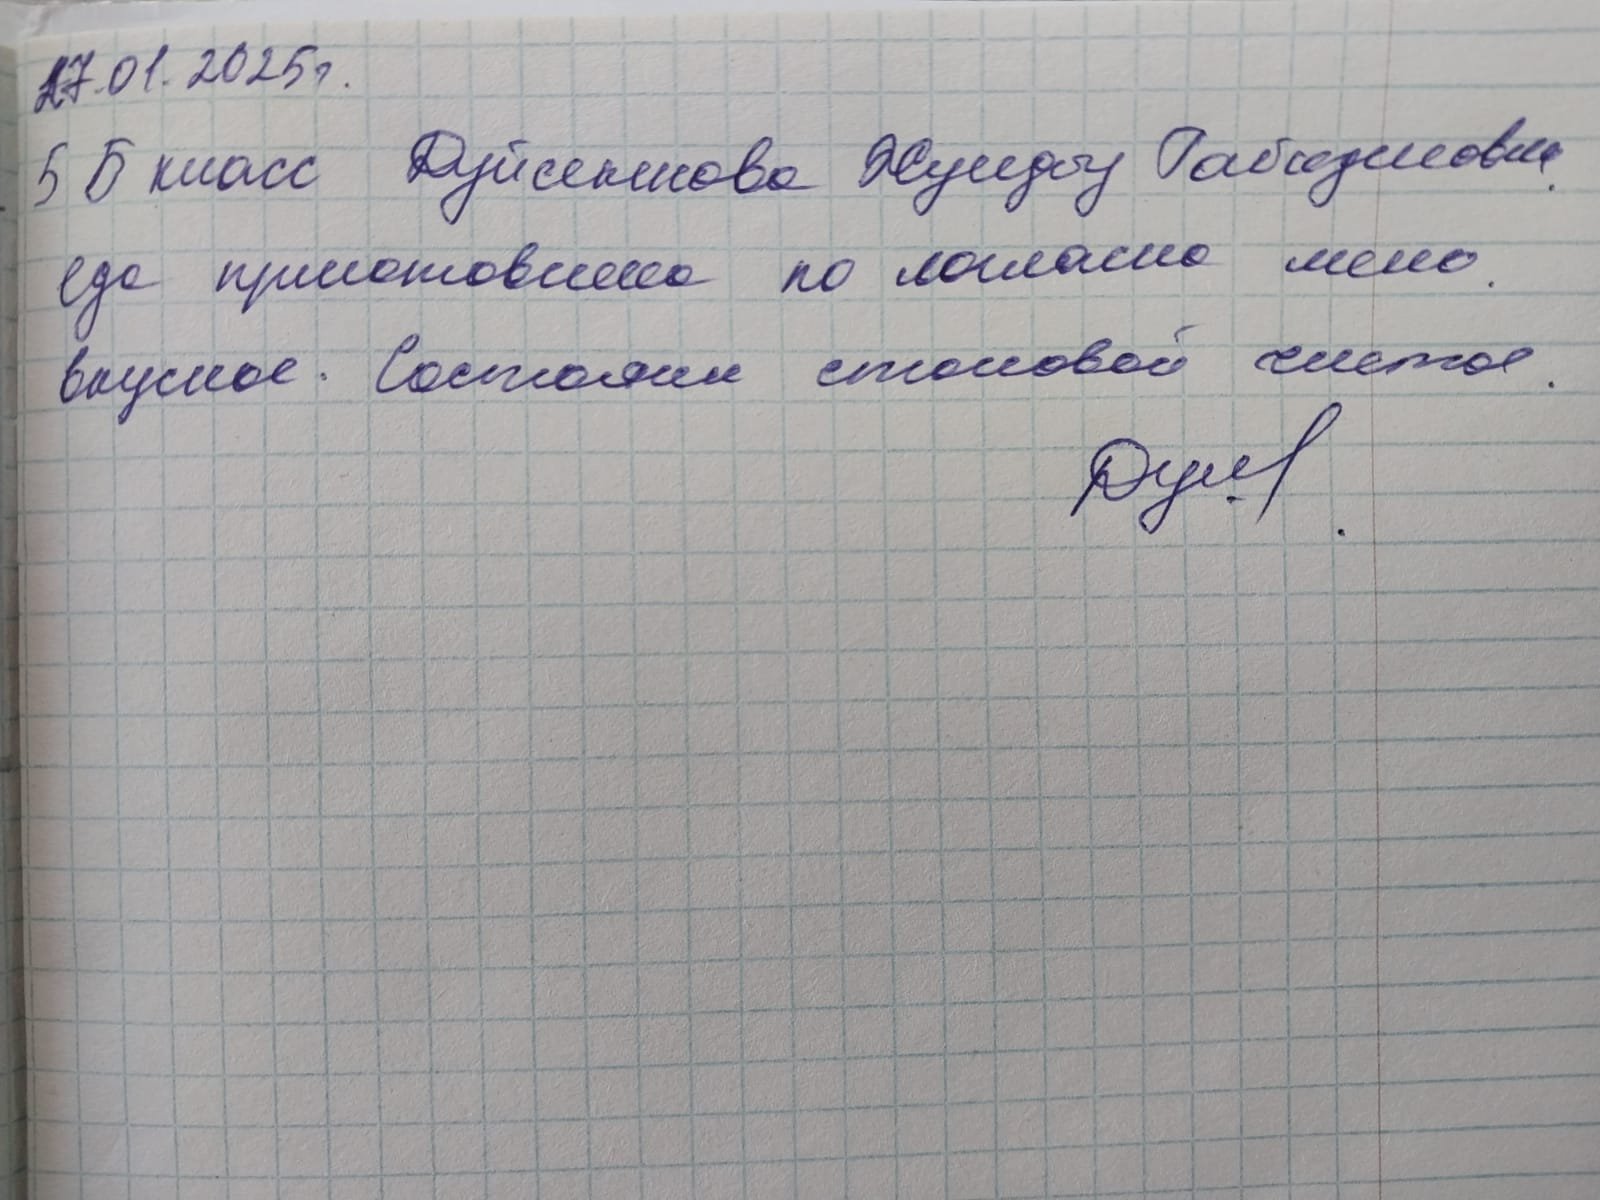 27.01.2025г.
5 Б класс Дуйсекинова Жулдыз
еда приготовлена по согласно меню.
вкусное. Состояни столовой чистое.